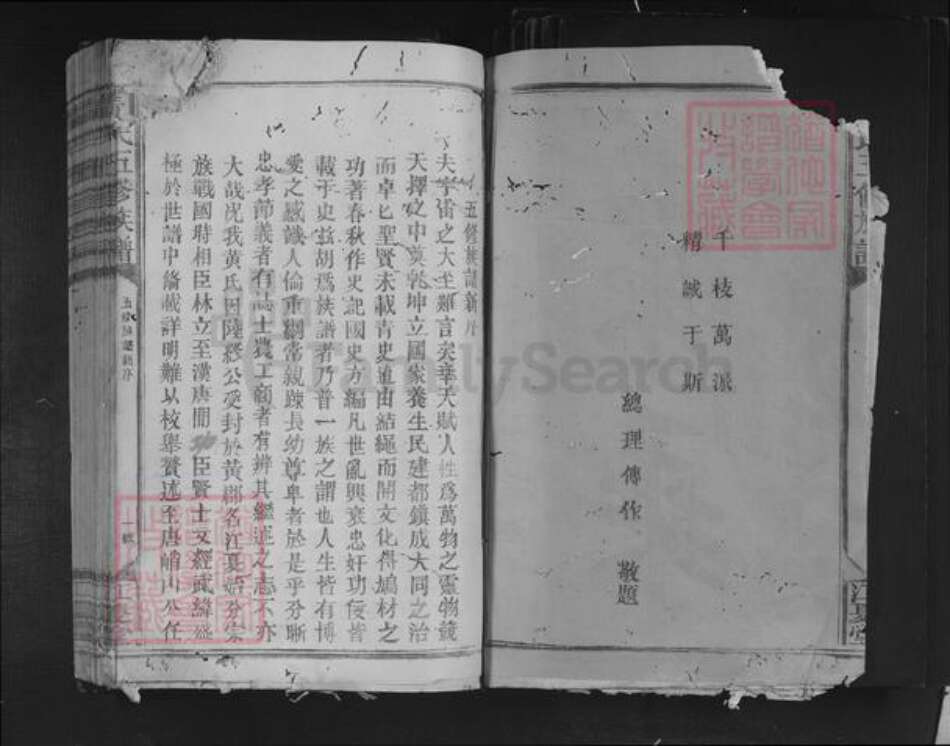 千枝萬派
精誠于斯
總理傳作 敬題
五修族譜新序
夫宇宙之大至難言矣幸天賦人性爲萬物之靈物競
天擇之中奠乾坤立國家養生民建都鎮成大同之治
而卓匕聖賢未載青史道由結繩而開文化得鳩材之
功著春秋作史記國史方編凡世亂興衰忠奸功侫皆
載于史玆胡爲族譜者乃普一族之謂也人生皆有博
愛之感識人倫重綱常親踈長幼尊卑者於是乎分晰
忠孝節義者有誌士農工商者有辨其繼述之志不亦
大哉况我黃氏因陸終公受封於黃郡名江夏始分宗
族戰國時相臣林立至漢唐間 臣賢士文經武緯
極於世譜中脩載詳明難以枚舉贅述至唐峭山公任
五修族譜新序
江夏堂
FamilySearch